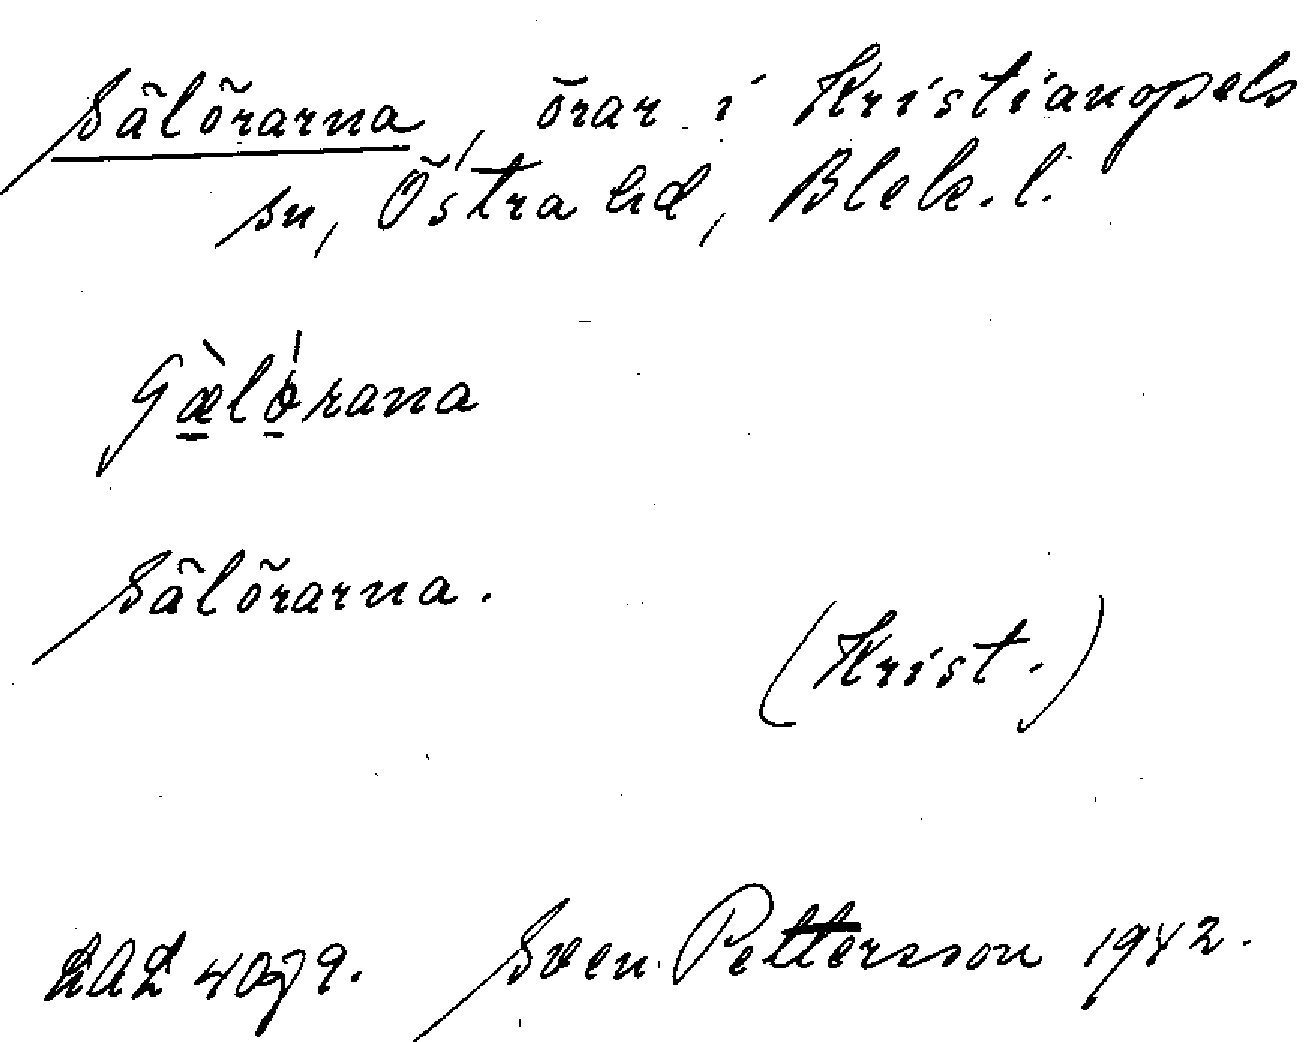 Sälörarna, örar i Kristianopels
sn, Östra hd, Blek. l.
Sälörarna.
(Krist.)
LAL 4079. Sven Pettersson 1942.